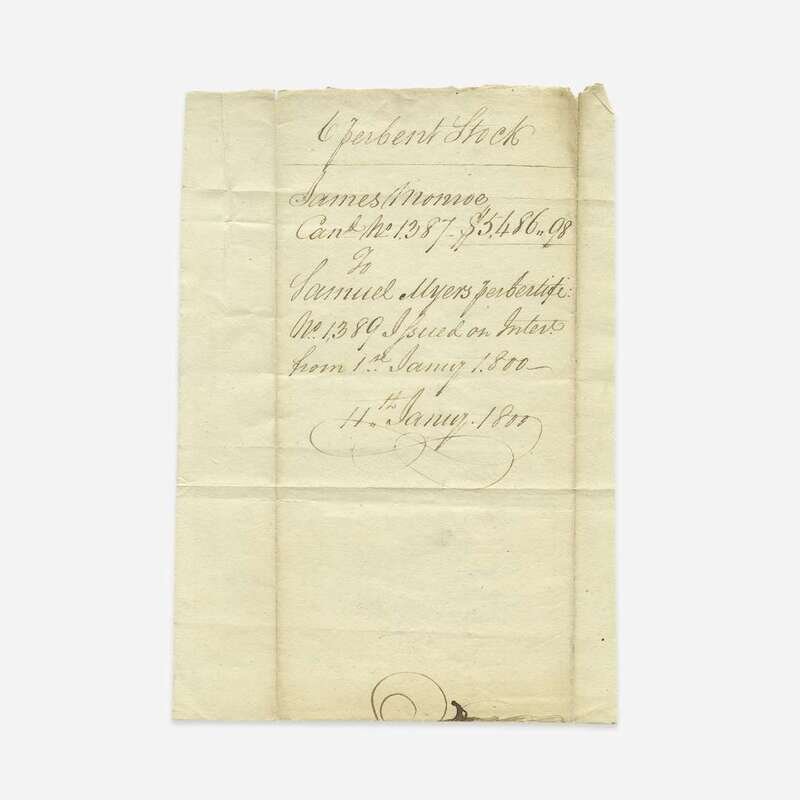 6 perCent Stock
James Monroe
Cand. No. 1387 - $5,486..98
To
Samuel Myers per Certifi:
No. 1389 Issued on Intert.
from 1st. Jany 1.800 —
4th. Jany. 1800